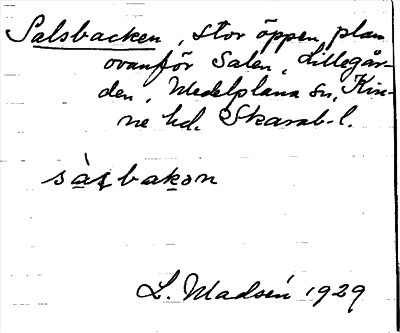 Salsbacken, stor öppen plan
ovanför Salen, Lillegår-
den, Medelplana sn, Kin-
ne hd. Skarab. l.
sàsbakɘn
L. Madsén 1929